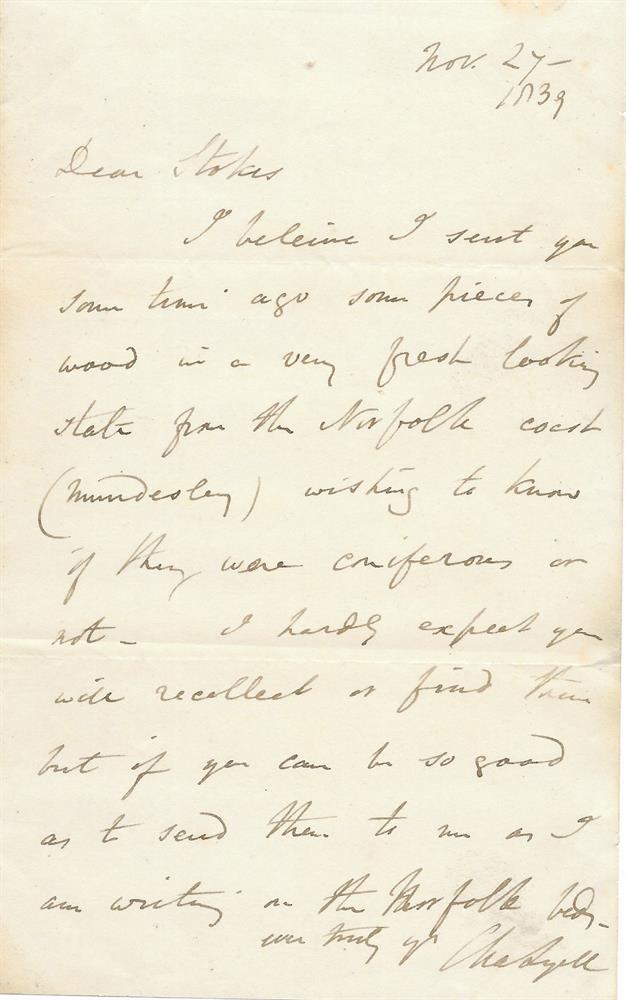 Nov. 27 -
1839
Dear Stokes
I beleive I sent you
some time ago some pieces of
wood in a very fresh looking
state from the Norfolk coast
(Mundesley) wishing to know
if they were coniferous or
not - I hardly expect you
will recollect or find them
but if you can be so good
as to send them to me as I
am writing on the Norfolk beds -
ever truly yrs
Cha Lyell